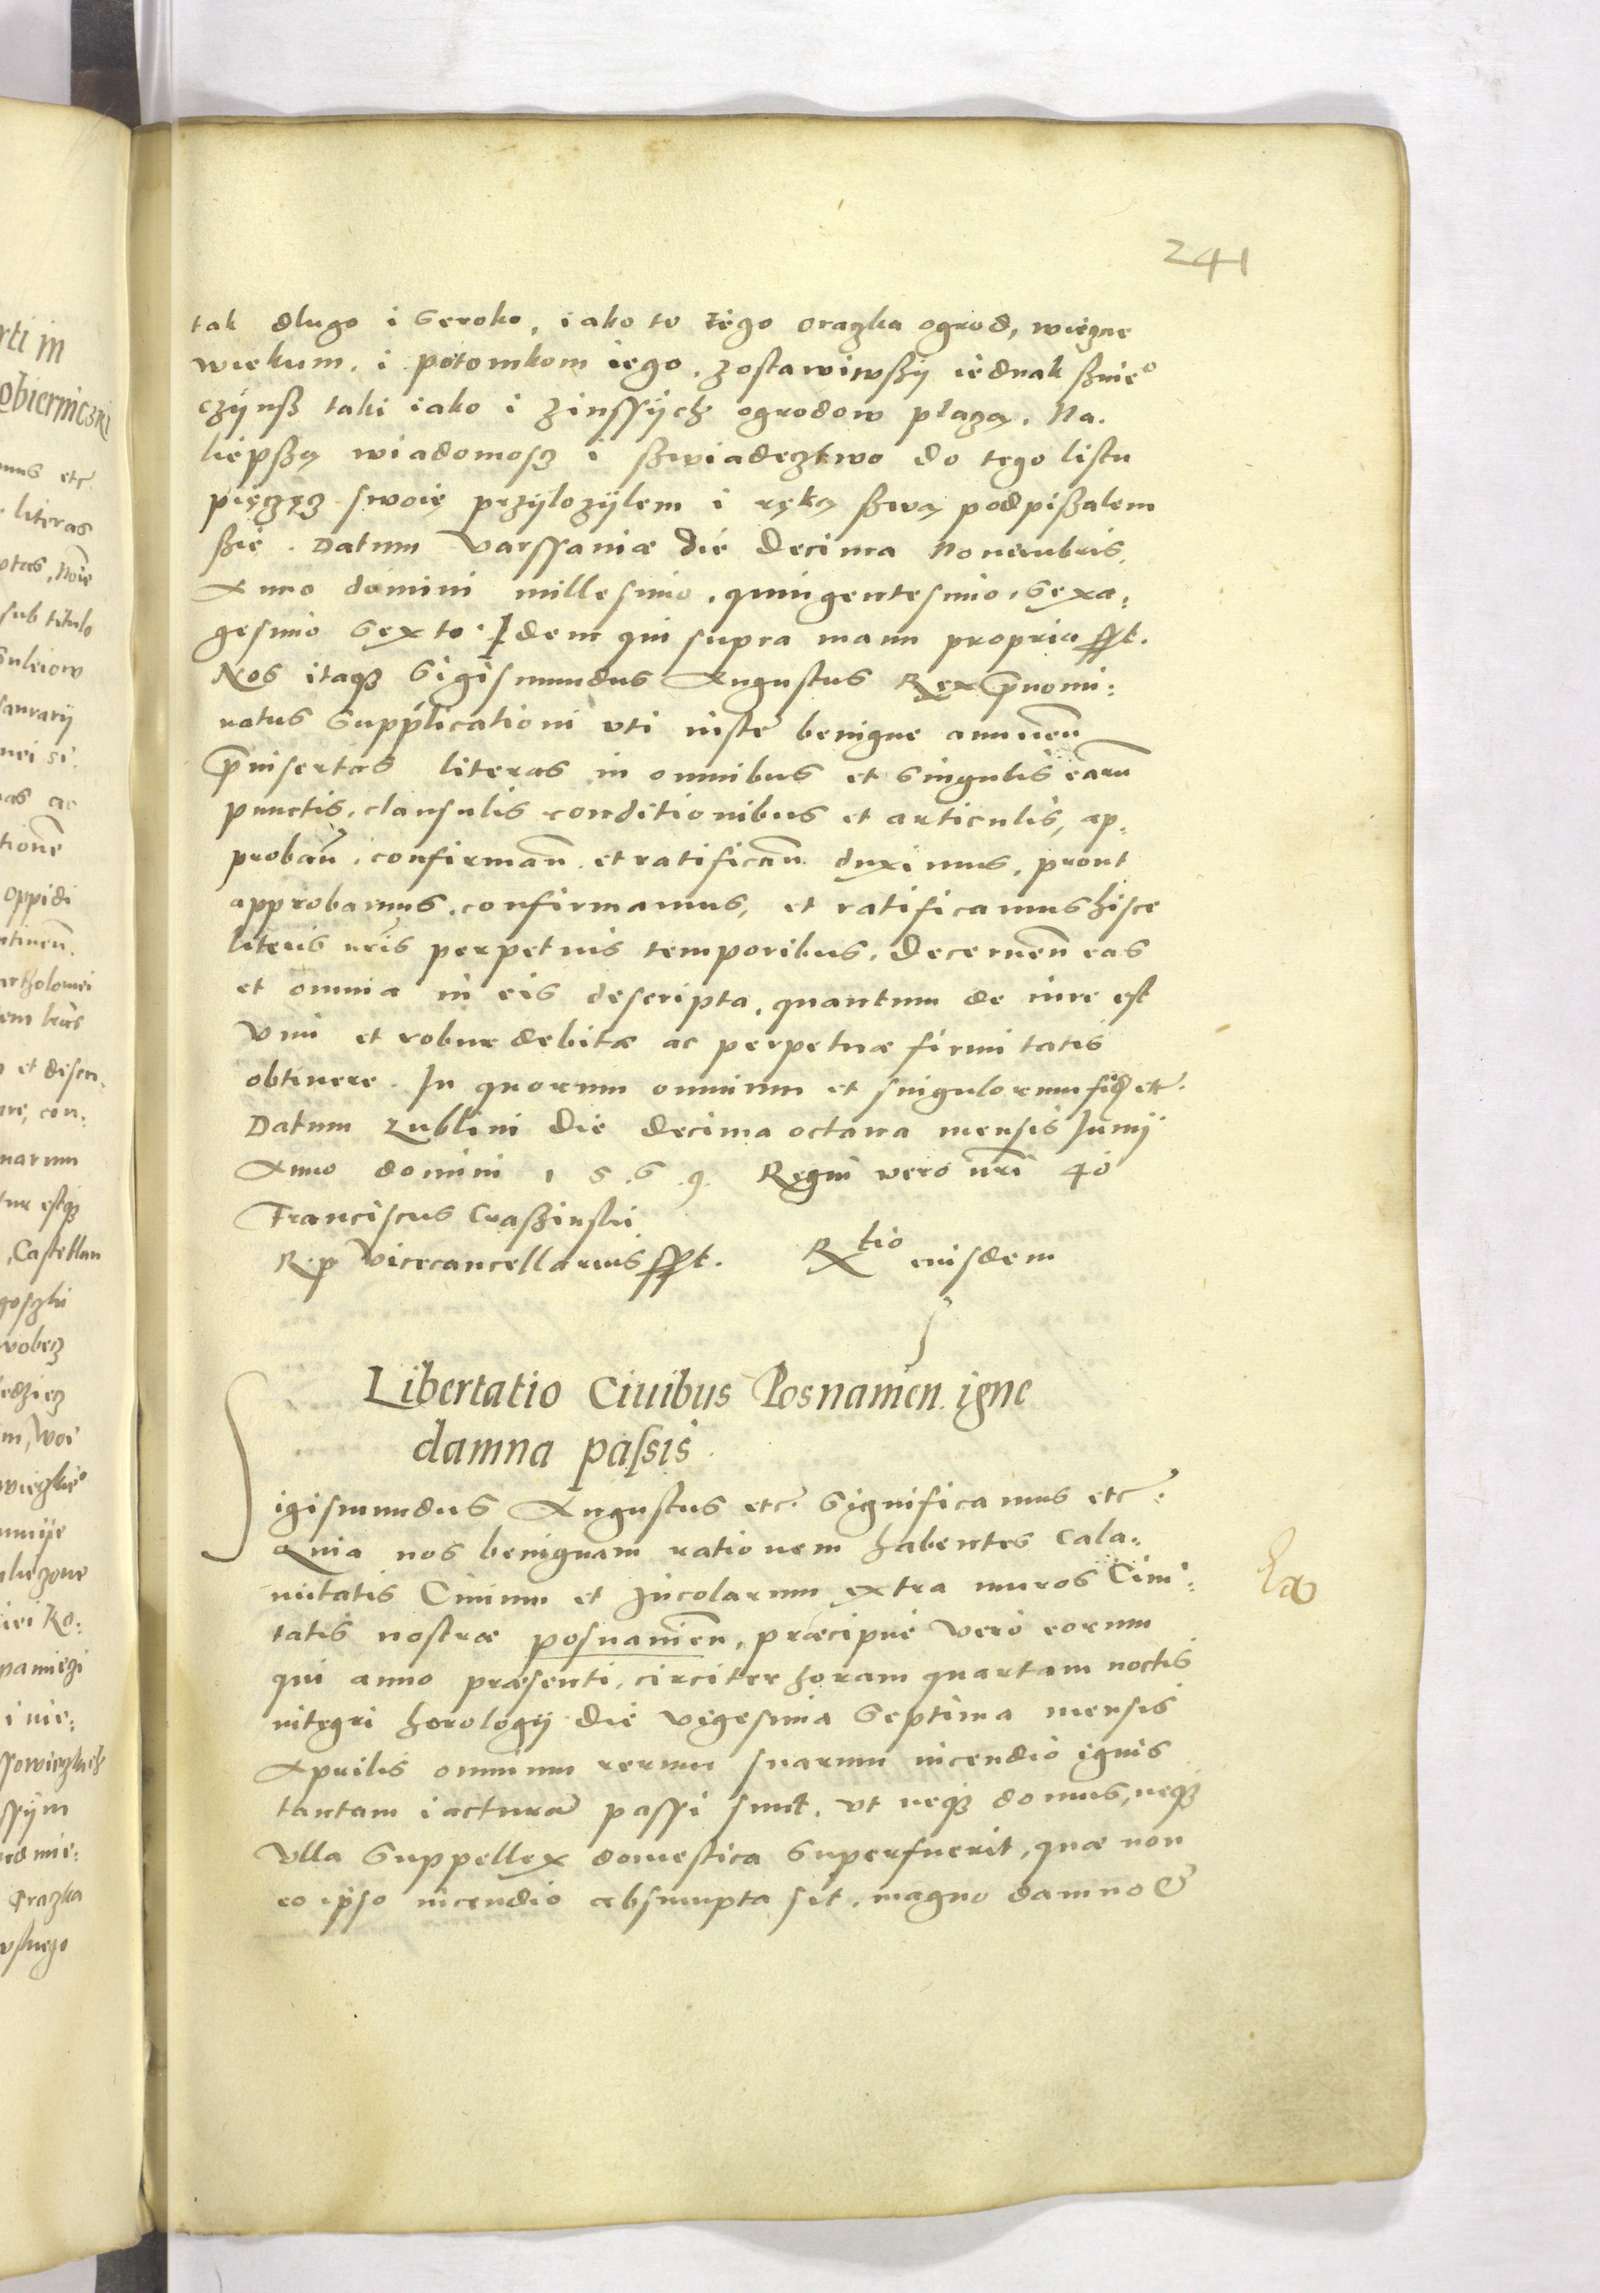 241
tak dlugo i seroko, iako to tego oraczka ogrod, wieczne
wiekum, i potomkom iego, zostawiwßy iednak ßnie°
czÿnß taki iako i zinssÿch ogrodow płaczą. Na
liepßą wiadomoscz i ßwiadecztwo do tego listu
pięczęcz swoię przÿlozÿlem i ręką ßwą podpißalem
ßię. Datum Varssauiæ die decima Nouembris,
Anno domini millesimo, quingentesimo, sexa,
gesimo sexto. Idem qui supra manu propria sspt.
Nos itaqз Sigismundus Augustus Rex p̃nomi:
natus supplicationi vti iuste benigne annuen̄
p̃insertas literas in omnibus et singulis earu͂
punctis, clausulis conditionibus et articulis, ap,
proban̄, confirman̄ et ratifican̄ duximus, prout
approbamus, confirmamus, et ratificamus hisce
literis nr̃is perpetuis temporibus, decernen̄ eas
et omnia in eis descripta, quantum de iure est
vim et robur debitæ ac perpetuæ firmitatis
obtinere. In quorum omnium et singulorum fid̃ etc.
Datum Lublini die decima octaua mensis Junij
Anno domini 1 5 6 9 Regni vero nr̃i 40
Franciscus Craßinski
R.p Vicecancellarius sspt. Rtio eiusdem
Libertatio Ciuibus Posnanien. igne
damna passis.
Sigismundus Augustus etc. Significamus etc.
Quia nos benignam rationem habentes cala,
mitatis Ciuium et Incolarum extra muros Ciui:
tatis nostræ posnanien̄, præcipue vero eorum
qui anno præsenti, circiter horam quartam noctis
integri horologij die vigesima septima mensis
Aprilis omnium rerum suarum incendio ignis
tantam iactura͂ passi sunt, vt neqз domus, neqз
vlla suppellex domestica superfuerit, quæ non
eo ipso incendio absumpta sit, magno damno &